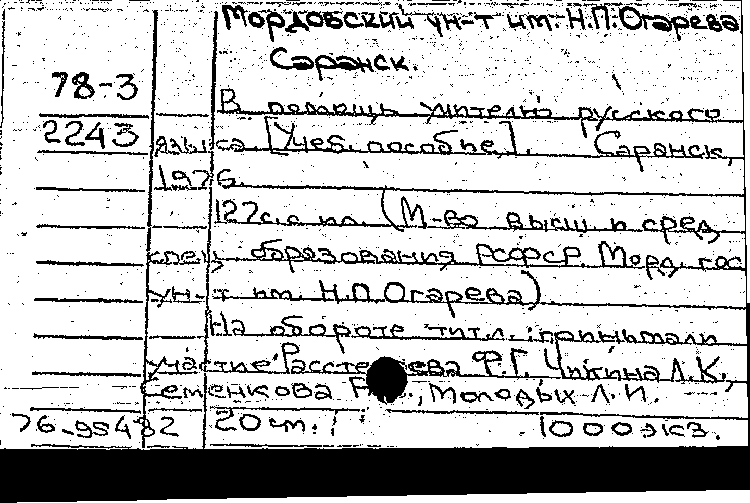 Мордовский ун-т им. Н.П. Огарева
Саранск.
78-3
2243
В помощь учителю русского
языка [Учеб. пособие]. Саранск,
1976.
127с. с ил. (М-во высш. и сред.
спец. образования РСФСР. Морд. гос.
ун-т им. Н.П. Огарева)
На обороте тит.л.: принимали
участие Ф.Г. Чикина Л.К.,
Семенкова Молодых Л.И.
76-95482 20 см. 1000 экз.